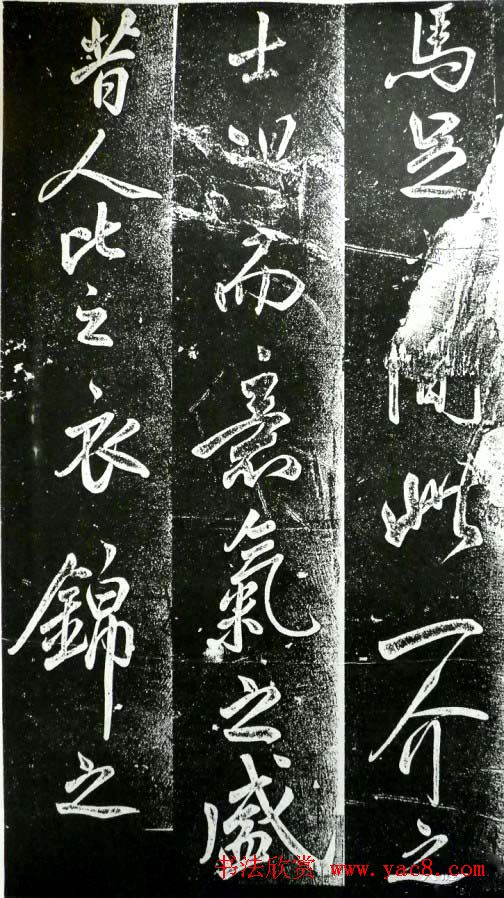 馬足間此一介之
士而意氣之盛
昔人比之衣錦之
书法欣赏 www.yac8.com